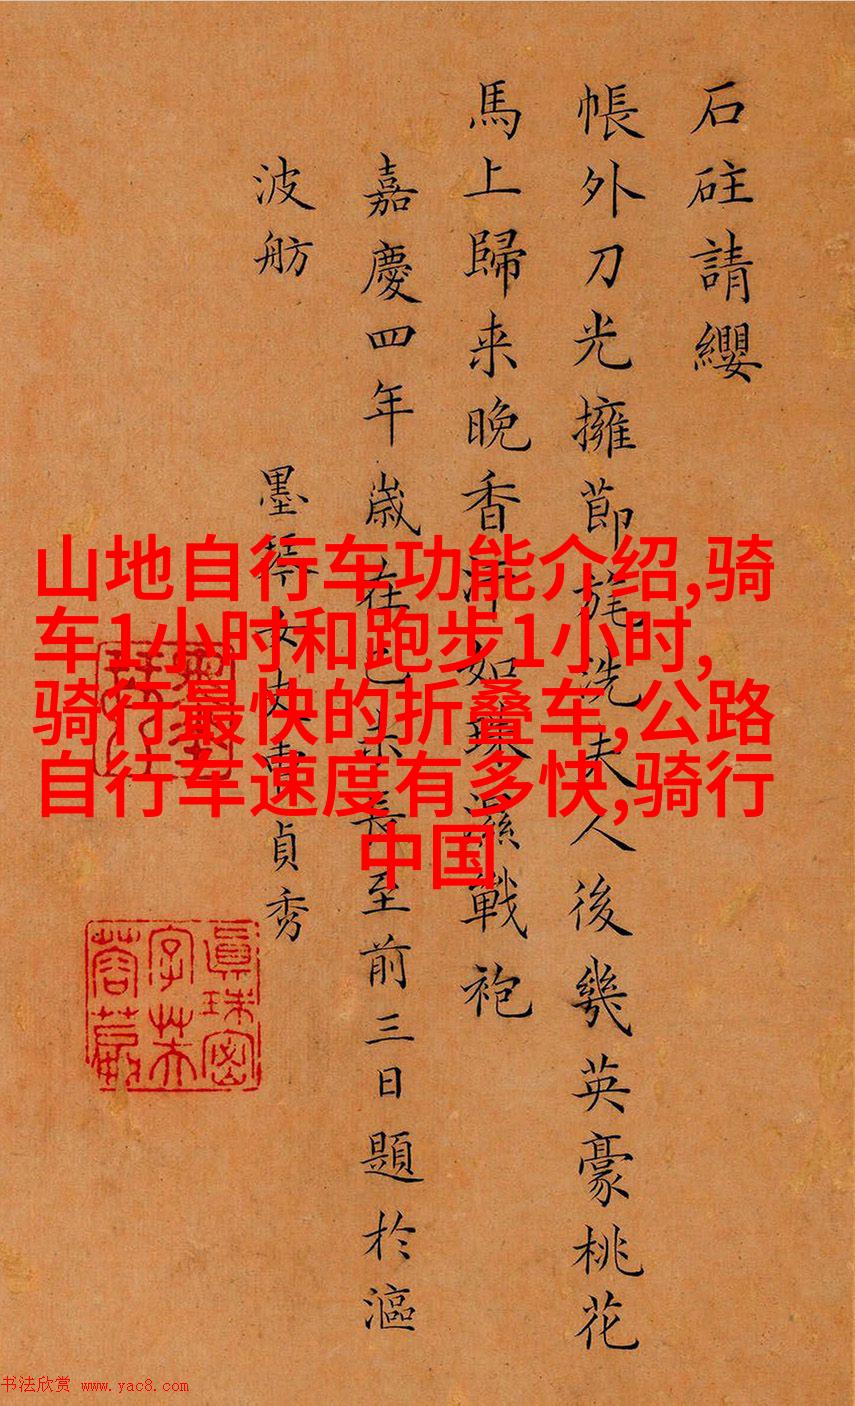 石砫請纓
帳外刀光擁節旄洗夫人後幾英豪桃花
馬上歸来晚香汗如珠濕戰袍
嘉慶四年歲在己未長至前三日題於漚
波舫
墨琴女史曹貞秀
山地自行车功能介绍,骑
车1小时和跑步1小时,
骑行最快的折叠车,公路
自行车速度有多快,骑行
中国
眞珠密
字
蓉
书法欣赏 www.yac8.com